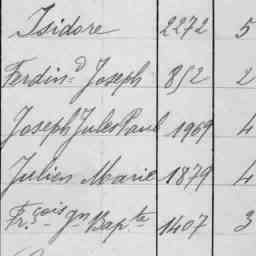 Isidore 2272 5
Ferdin.d Joseph 852 2
Joseph Jules Paul 1909 4
Julien Marie 1879 4
Fr.çois Jn Bapte 1407 3